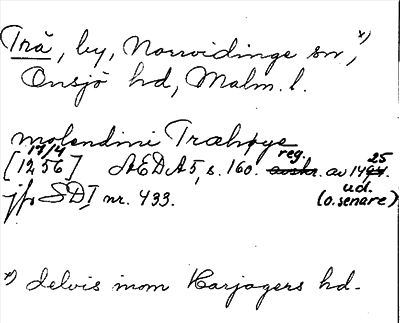 Trå, by, Norrvidinge sn, x)
Onsjö hd, Malm. l.
molendini Træhøye
17/4
[1256] AEDA5, s. 160. reg. av 1425
ud.
jfr SDI nr. 433. (o. senare)
x) delvis inom Harjagers hd.